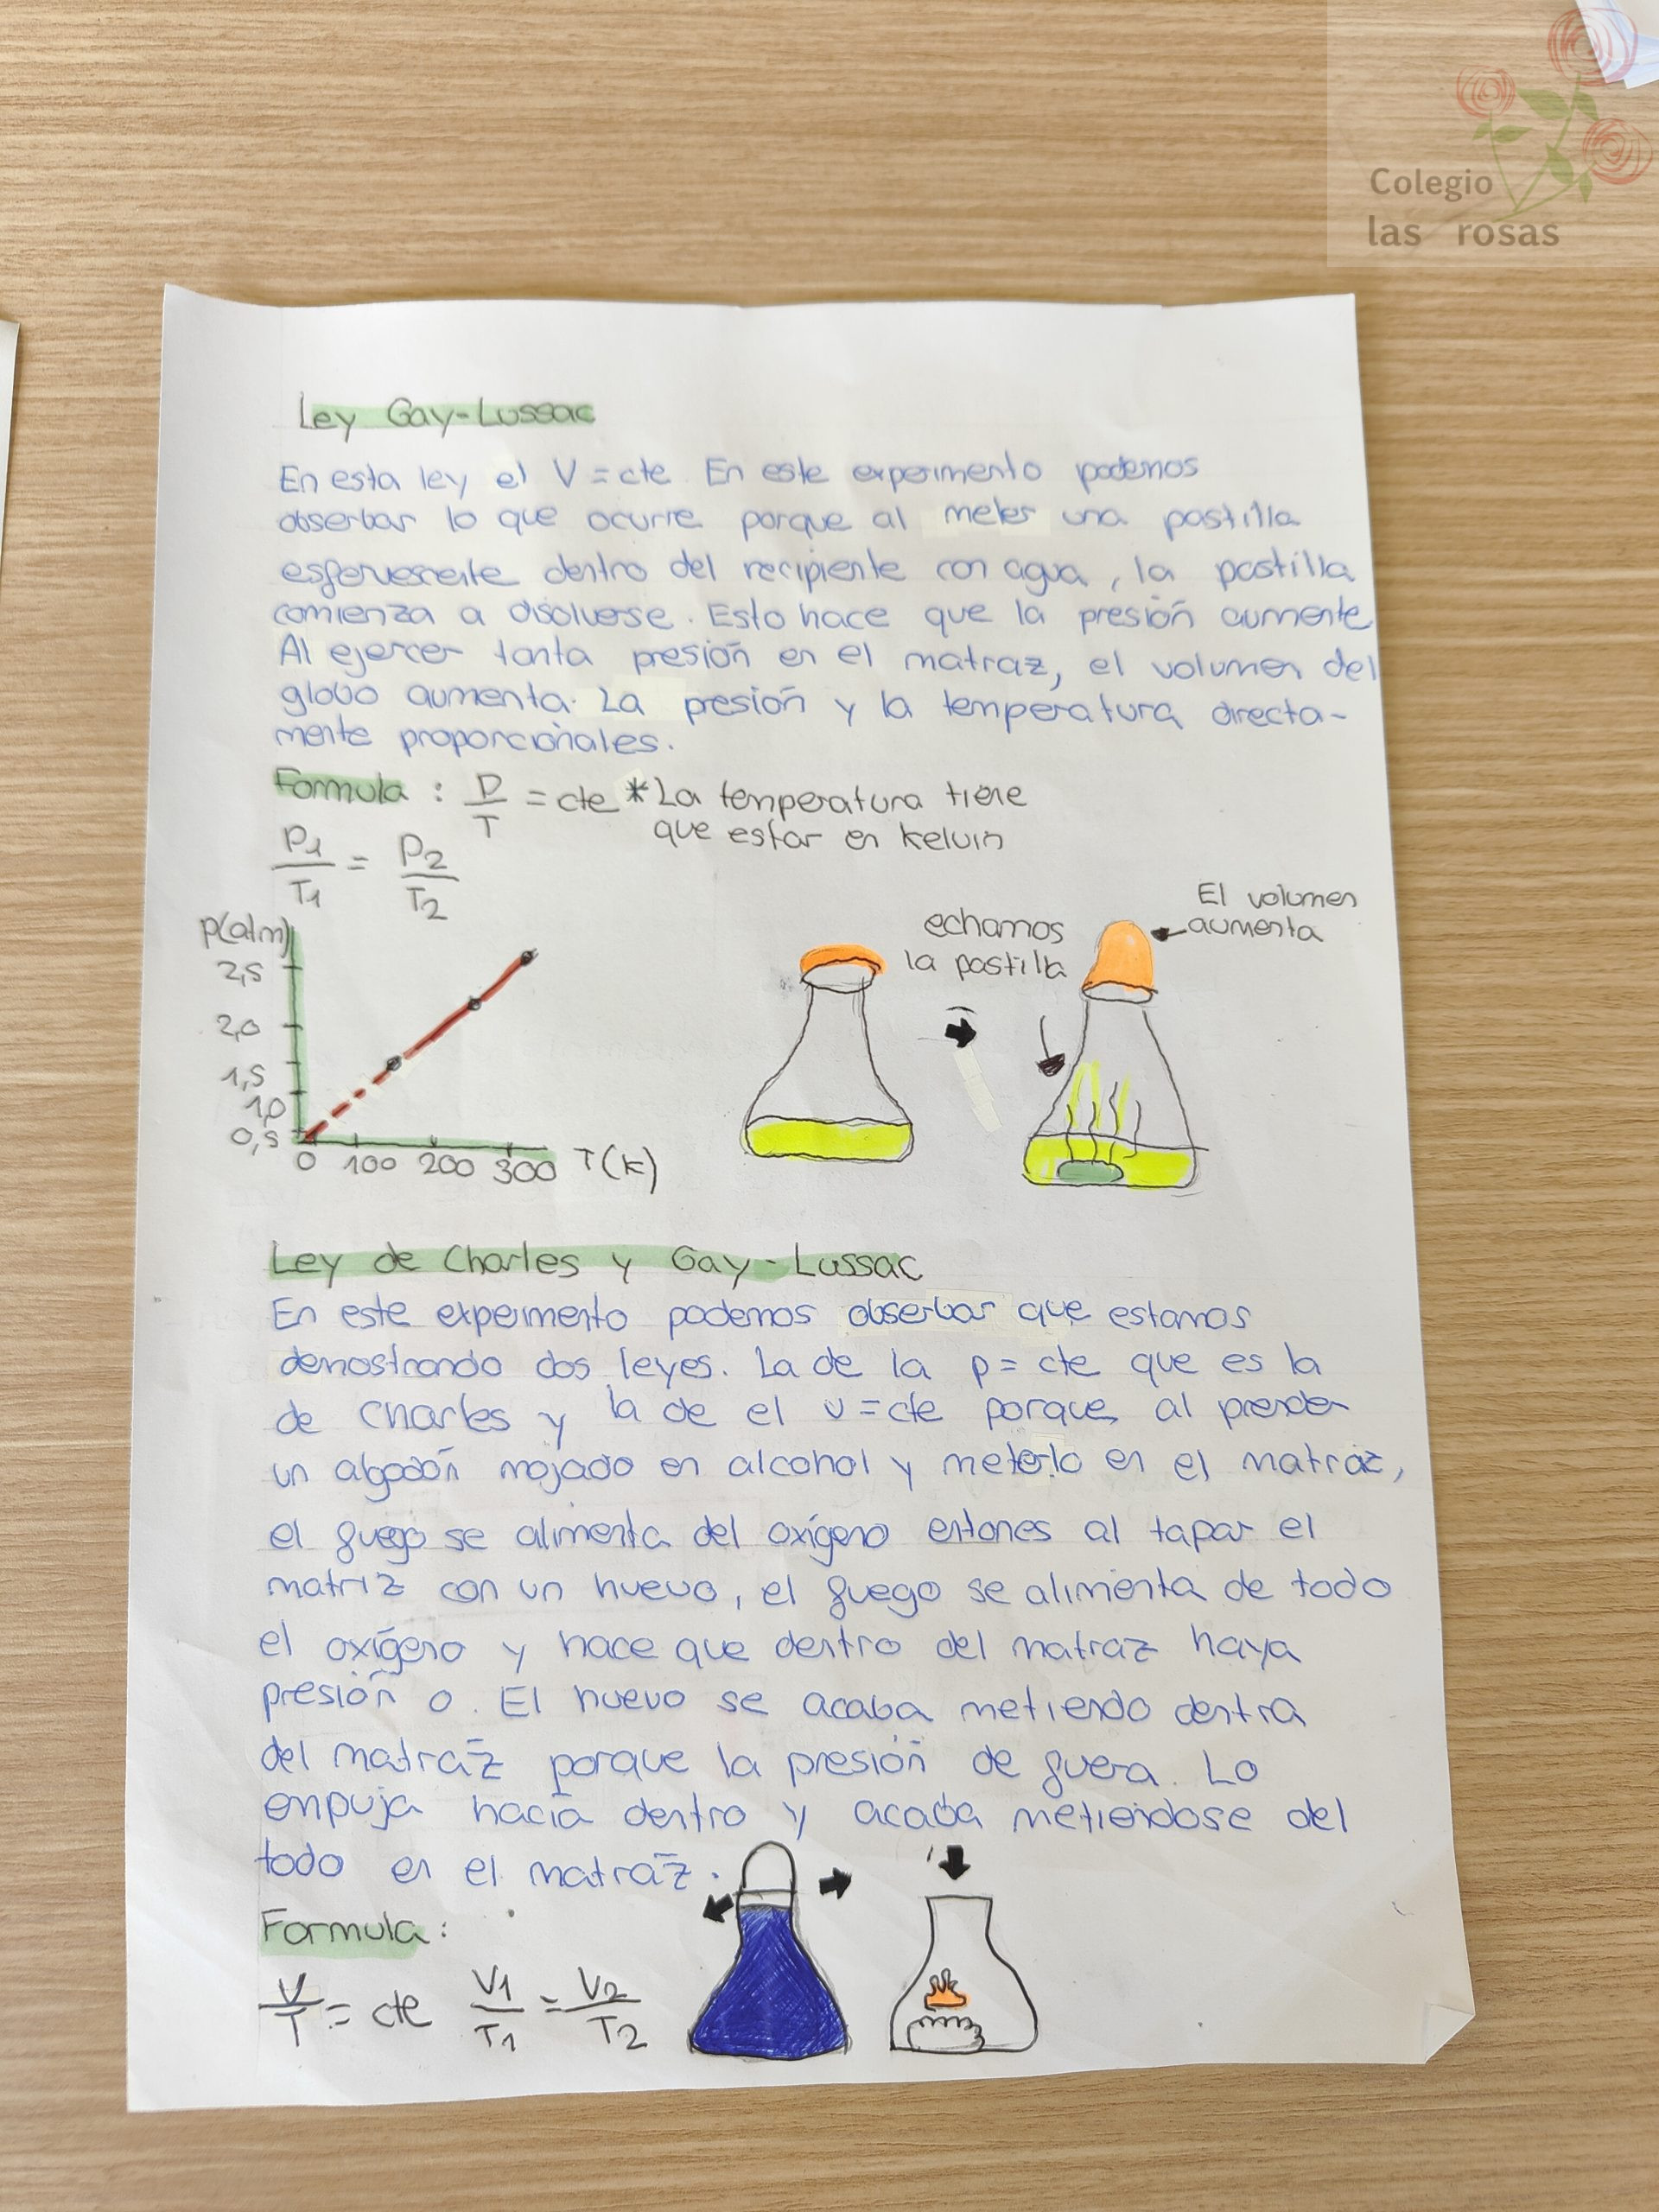 Colegio
las rosas
Ley Gay-Lussac
En esta ley el V = cte. En este experimento podemos
obserbar lo que ocurre porque al meter una pastilla
esferverente dentro del recipiente con agua, la pastilla
comienza a disolverse. Esto hace que la presión aumente
Al ejercer tanta presión en el matraz, el volumen del
globo aumenta. La presión y la temperatura directa-
mente proporcionales.
Formula : P/T = cte *La temperatura tiene
que estar en kelvin
P1/T1 = P2/T2
El volumen
aumenta
echamos
la pastilla
p(atm)
2,5
2,0
1,5
1,0
0,5
0 100 200 300 T(K)
Ley de Charles y Gay-Lussac
En este experimento podemos obserbar que estamos
demostrando dos leyes. La de la p = cte que es la
de Charles y la de el v = cte porque al prender
un algodón mojado en alcohol y meterlo en el matraz,
el fuego se alimenta del oxígeno entones al tapar el
matriz con un huevo, el fuego se alimenta de todo
el oxígeno y hace que dentro del matraz haya
presión 0. El huevo se acaba metiendo dentra
del matraz porque la presión de fuera. Lo
empuja hacia dentro y acaba metiendose del
todo en el matraz.
Formula :
V/T = cte V1/T1 = V2/T2